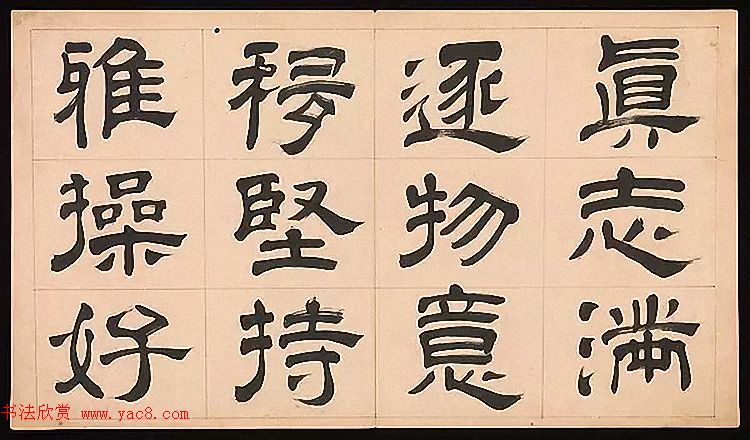 真志滿
逐物意
移堅持
雅操好
书法欣赏 www.yac8.com